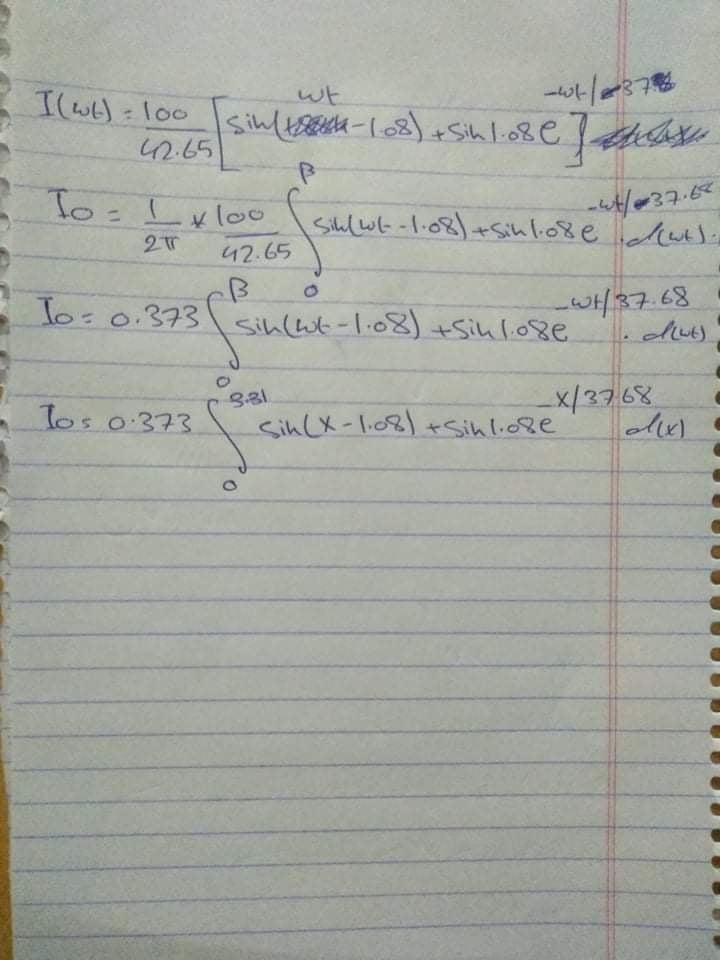 I(wt) = 100/42.65 [sin(wt - 1.08) + sin 1.08 e^-wt/37.68]
Io = 1/2π * 100/42.65 ∫₀^β sin(wt - 1.08) + sin 1.08 e^-wt/37.68 . d(wt).
Io = 0.373 ∫₀^β sin(wt - 1.08) + sin 1.08 e^-wt/37.68 . d(wt)
Io = 0.373 ∫₀^3.81 sin(x - 1.08) + sin 1.08 e^-x/37.68 d(x)